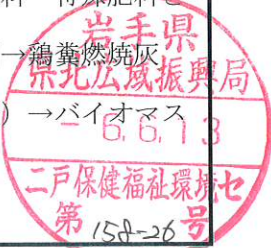 特殊肥料と
→鶏糞燃焼灰
）→バイオマス
岩手県
県北広域振興局
-6.6.13
二戸保健福祉環境セ
第158-26号